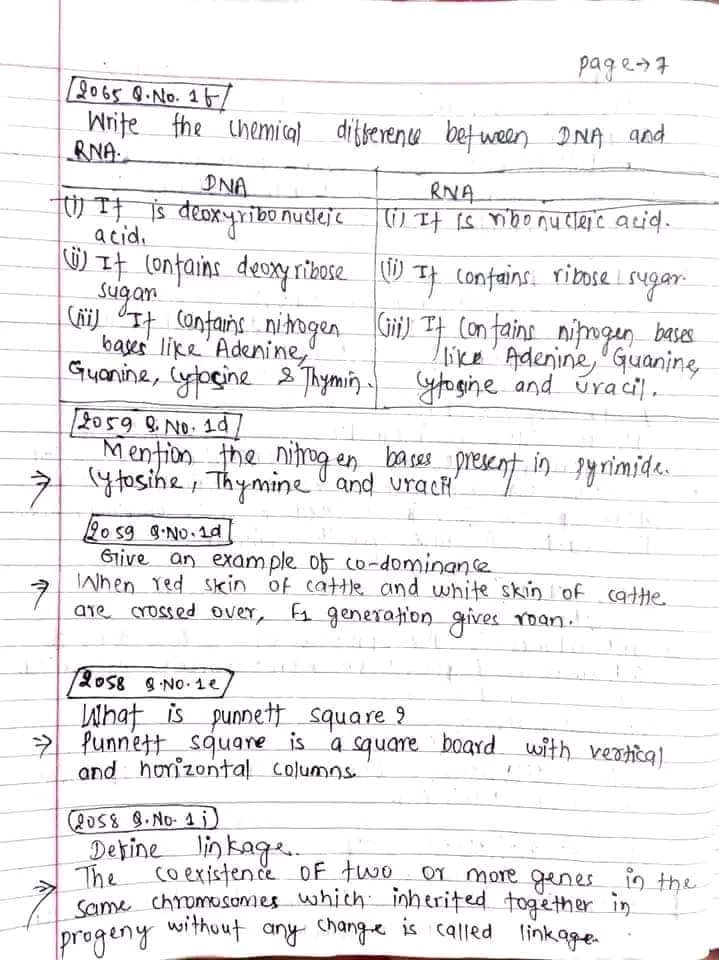 page→7
2065 Q.No. 1f
Write the chemical difference between DNA and
RNA.
DNA
(i) It is deoxyribonucleic
acid.
(ii) It contains deoxyribose
sugar
(iii) It contains nitrogen
bases like Adenine,
Guanine, Cytocine & Thymin.
RNA
(i) It is ribonucleic acid.
(ii) It contains ribose sugar.
(iii) It contains nitrogen bases
like Adenine, Guanine,
Cytosine and uracil.
2059 Q.No. 1d
Mention the nitrogen bases present in pyrimide.
⇒ Cytosine, Thymine and uracil
2059 Q.No.1d
Give an example of co-dominance
⇒ When red skin of cattle and white skin of cattle
are crossed over, F1 generation gives roan.
2058 Q.No.1e
What is punnett square?
⇒ Punnett square is a square board with vertical
and horizontal columns
2058 Q.No. 1j
Define linkage.
⇒ The coexistence of two or more genes in the
same chromosomes which inherited together in
progeny without any change is called linkage.